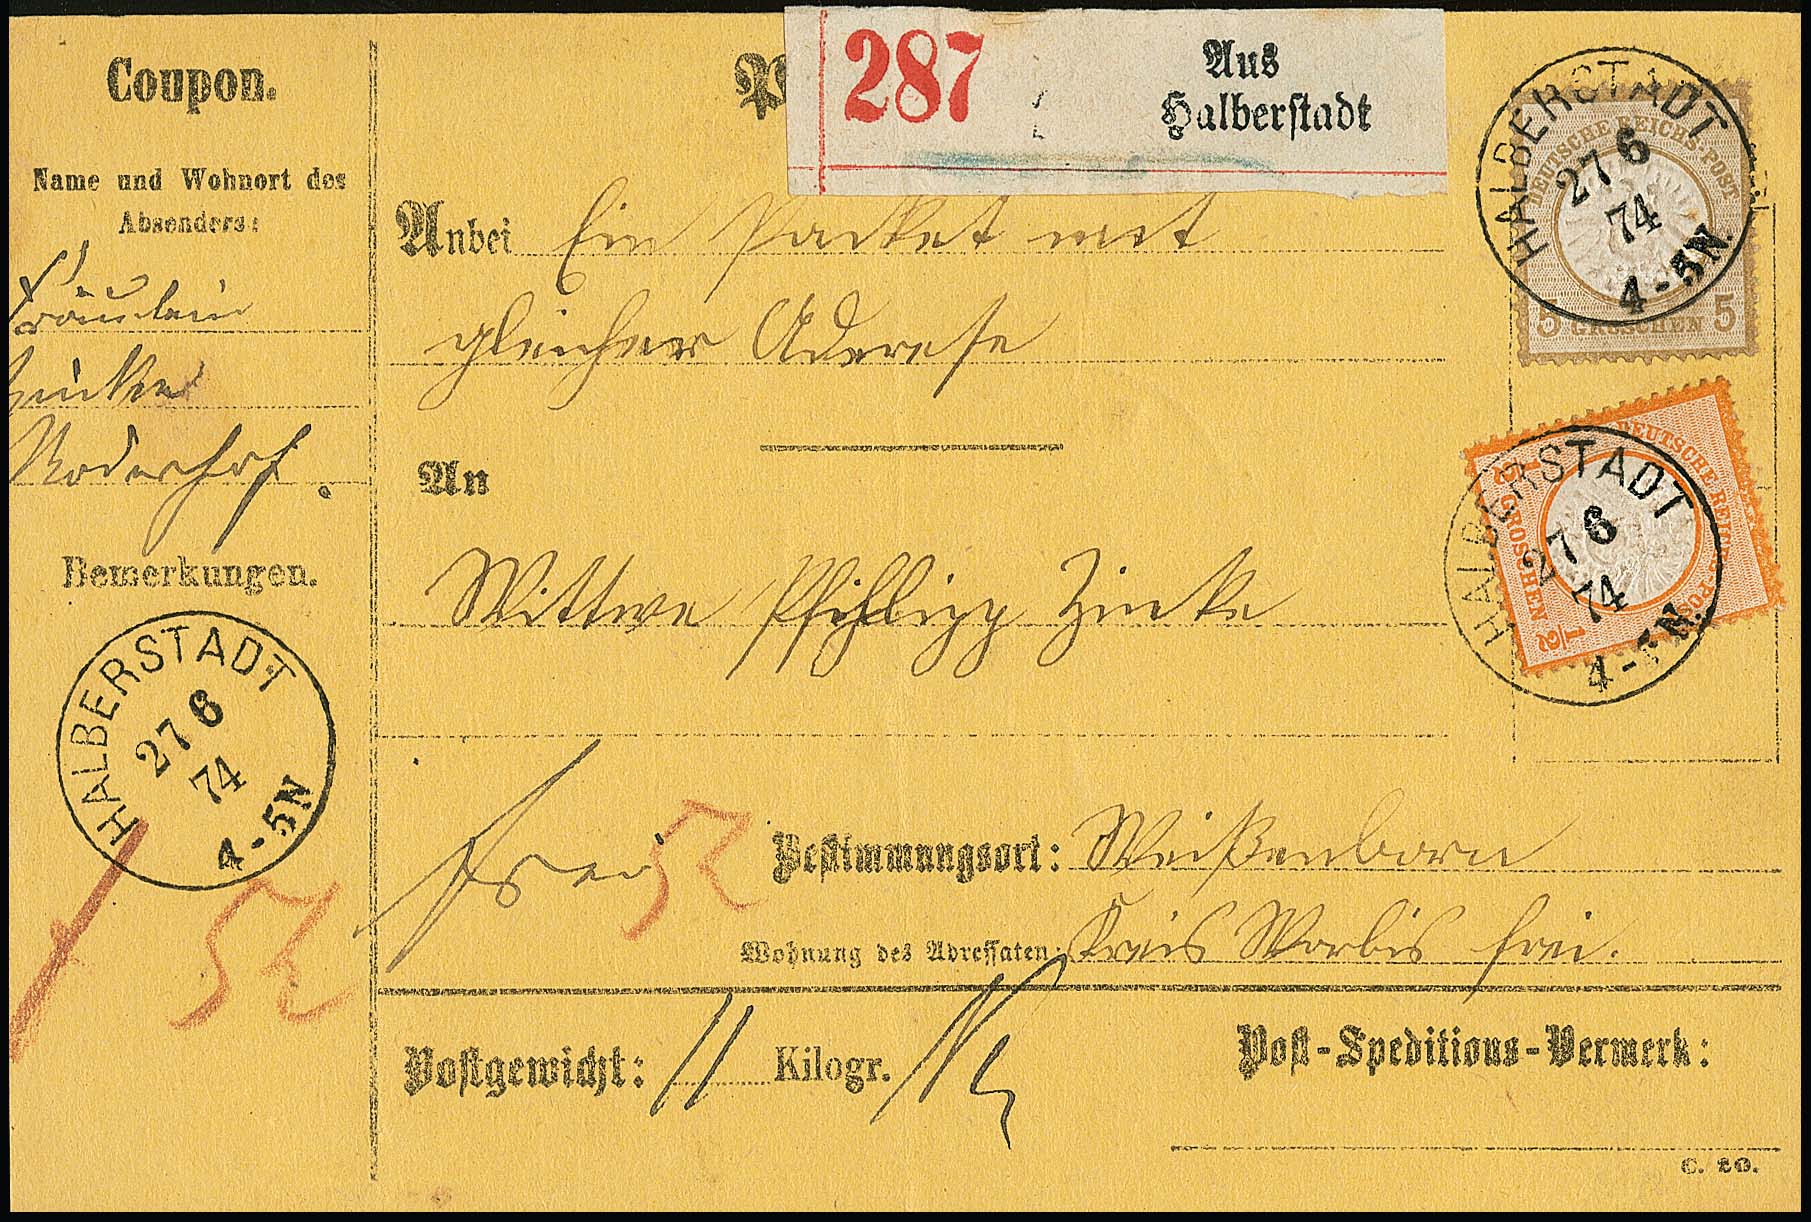 Coupon.
Name und Wohnort des
Absenders:
Fräulein
Zinke
Roderhof.
Bemerkungen.
HALBERSTADT
27 6
74
4-5N
52
287
Aus
Halberstadt
P
Anbei Ein Packet mit
gleicher Aderesse
An
Wittwe Phillipp Zinke
frei 52
Bestimmungsort: Weißenborn
Wohnung des Adressaten: Kreis Worbis frei.
Postgewicht: 11 Kilogr.
Post-Speditions-Vermerk:
C. 20.
HALBERSTADT
27 6
74
4-5N.
DEUTSCHE REICHS-POST
5 GROSCHEN 5
HALBERSTADT
27 6
74
4-5N.
DEUTSCHE REICHS-POST
1/2 GROSCHEN 1/2